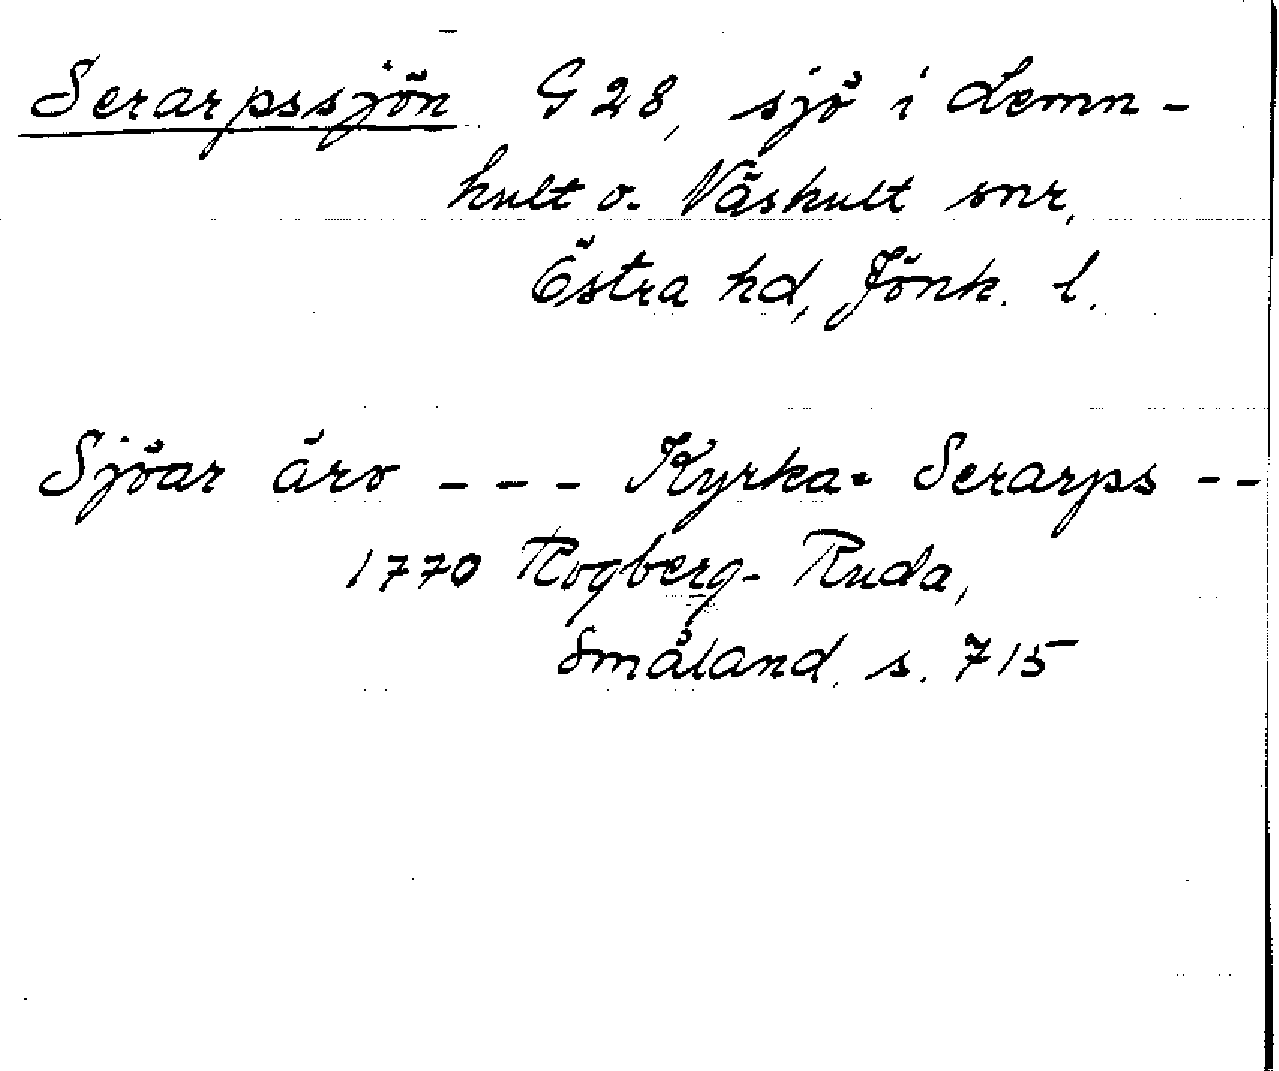 Serarpssjön G 28, sjö i Lemn-
hult o. Näshult snr,
Östra hd, Jönk. l.
Sjöar äro - - - Kyrka= Serarps - -
1770 Rogberg-Ruda,
Småland s. 715